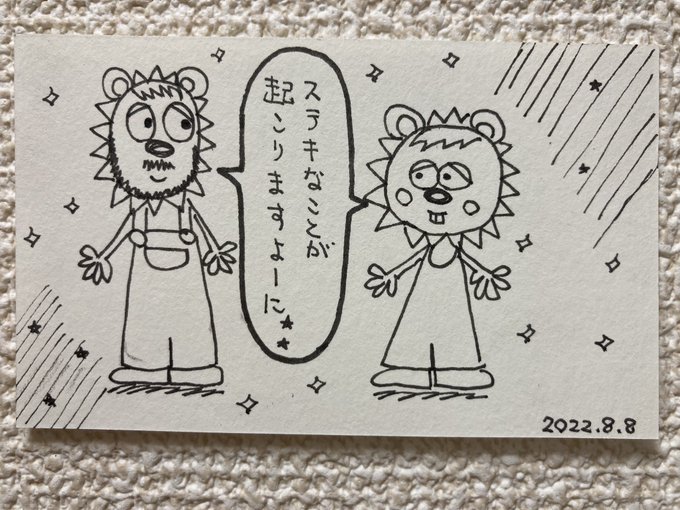 ステキなことが
起こりますよーに★★
2022.8.8